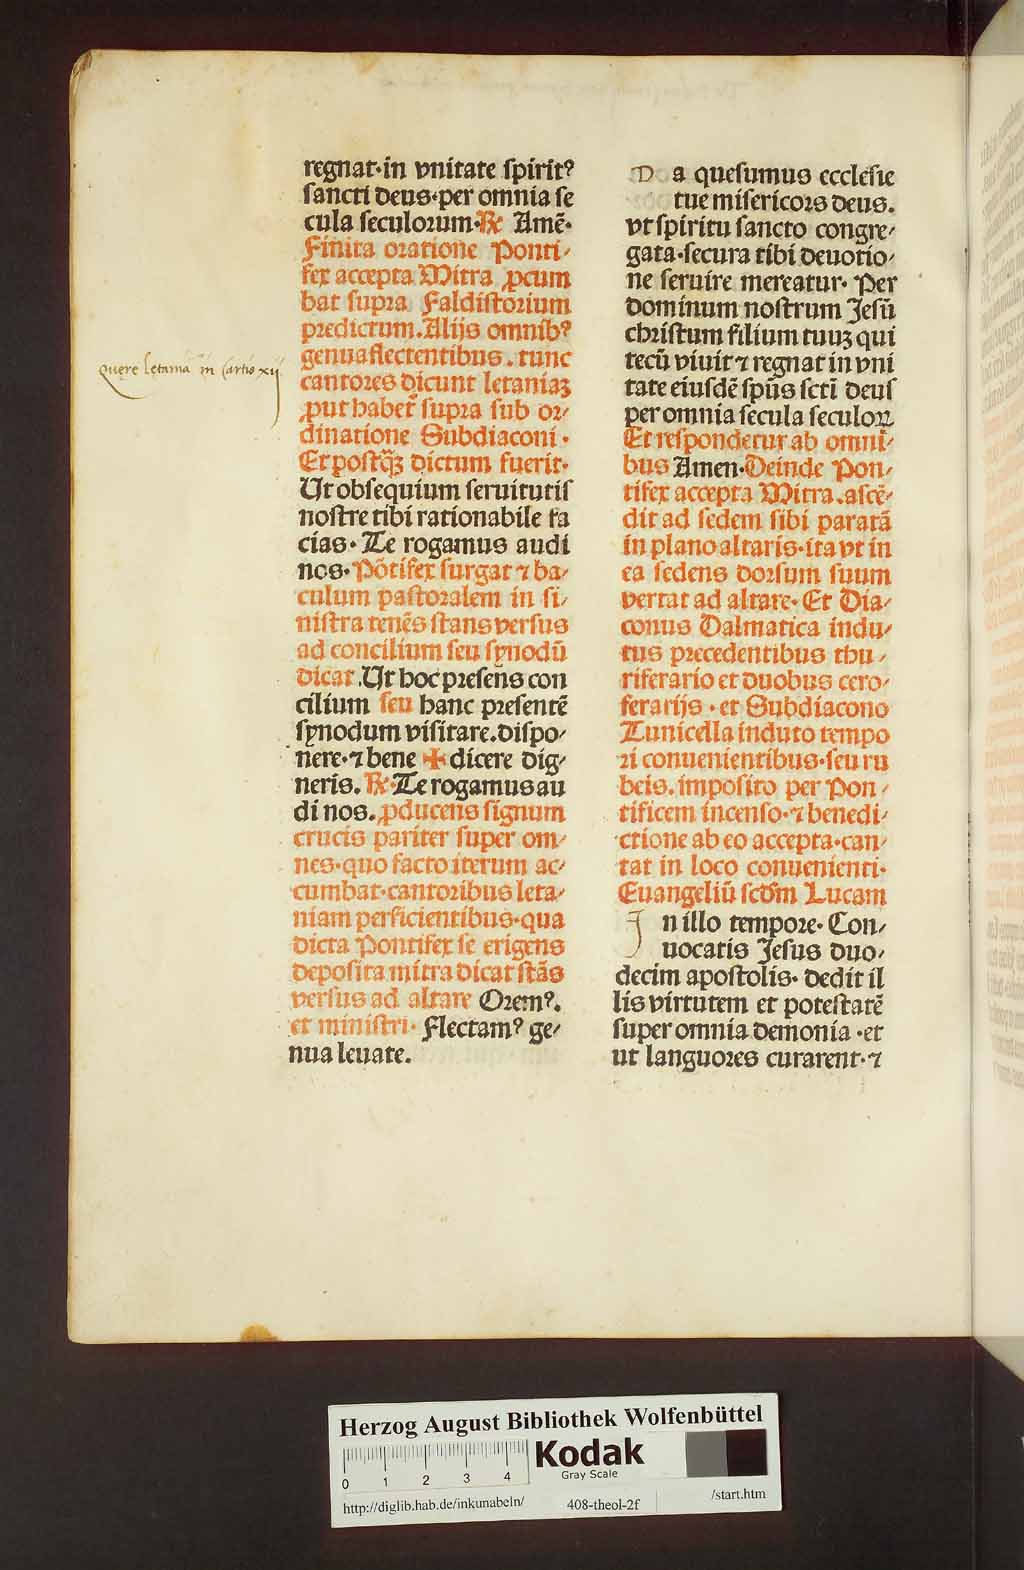 regnat·in vnitate spiritꝰ
sancti deus·per omnia se
cula seculorum·℟ Amē·
Finita oratione Ponti-
fex accepta Mitra ꝓcum
bat supra Faldistorium
predictum.Alijs omnibꝰ
genuaflectentibus.tunc
cantores dicunt letaniaꝫ
ꝓut habet̄ supra sub or-
dinatione Subdiaconi·
Et postꝗꝫ dictum fuerit·
Ut obsequium seruitutis
nostre tibi rationabile fa
cias· Te rogamus audi
nos·Pōtifex surgat ⁊ ba-
culum pastoralem in si-
nistra tenēs stans versus
ad concilium seu synodū
dicat.Ut hoc presens con
cilium seu hanc presentē
synodum visitare.dispo-
nere·⁊ bene ✠ dicere dig-
neris. ℟·Te rogamus au
di nos.ꝓducens signum
crucis pariter super om-
nes·quo facto iterum ac-
cumbat·cantoribus leta-
niam perficientibus·qua
dicta Pontifex se erigens
deposita mitra dicat stās
versus ad altare Oremꝰ.
et ministri· Flectamꝰ ge-
nua leuate.
Quere letania in Carto xij
Da quesumus ecclesie
tue misericors deus.
vt spiritu sancto congre-
gata·secura tibi deuotio-
ne seruire mereatur· Per
dominum nostrum Jesū
christum filium tuuꝫ qui
tecū viuit ⁊ regnat in vni
tate eiusdē spūs scti deus
per omnia secula seculoꝝ
Et respondetur ab omni-
bus Amen·Deinde Pon-
tifex accepta Mitra.ascē-
dit ad sedem sibi paratā
in plano altaris·ita vt in
ea sedens dorsum suum
vertat ad altare· Et Dia-
conus Dalmatica indu-
tus precedentibus thu-
riferario et duobus cero-
ferarijs·et Subdiacono
Tunicella induto tempo
ri conuenientibus·seu ru
beis.imposito per Pon-
tificem incenso·⁊ benedi-
ctione ab eo accepta·can-
tat in loco conuenienti·
Euangeliū scdm Lucam
In illo tempore· Con-
uocatis Jesus duo-
decim apostolis· dedit il
lis virtutem et potestatē
super omnia demonia·et
ut languores curarent·⁊
Herzog August Bibliothek Wolfenbüttel
Kodak
Gray Scale
0 1 2 3 4
http://diglib.hab.de/inkunabeln/ 408-theol-2f /start.htm